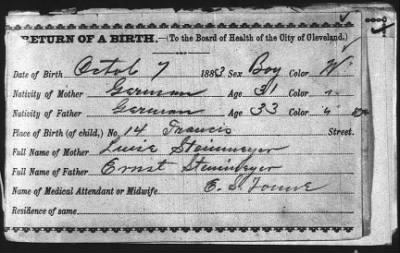 RETURN OF A BIRTH.—(To the Board of Health of the City of Cleveland.)
Date of Birth Octob 7 1883 Sex Boy Color W
Nativity of Mother German Age 31 Color "
Nativity of Father German Age 33 Color "
Place of Birth (of child,) No. 14 Francis Street.
Full Name of Mother Luise Steinmeyer
Full Name of Father Ernst Steinmeyer
Name of Medical Attendant or Midwife E. S.
Residence of same